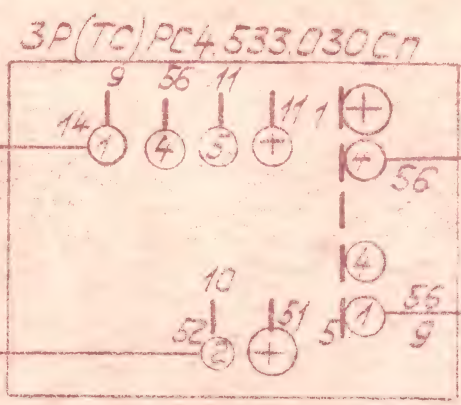 3Р(ТС)РС4.533.030Сп
9 56 11
14 1 4 3 + 11 1 +
+ 56
4
10
52 2 + 51 5 1 56
9